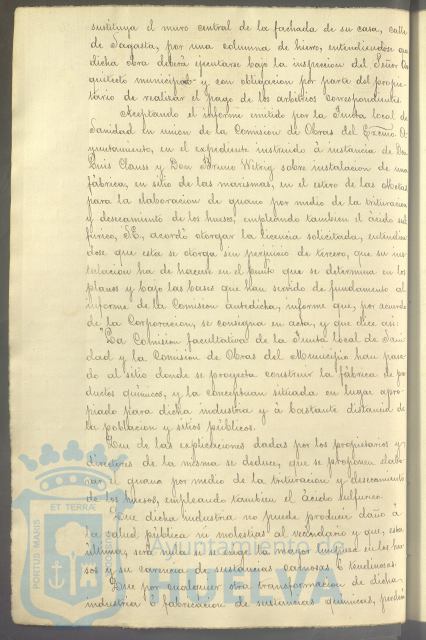 sustituya el muro central de la fachada de su casa, calle
de Sagasta, por una columna de hierro, entendiendose que
dicha obra deberá ejecutarse bajo la inspeccion del Señor Ar
quitecto municipal y con obligacion por parte del propie-
tario de realizar el pago de los arbitrios correspondientes.
Aceptando el informe emitido por la Junta local de
Sanidad en union de la Comision de Obras del Excmo. A-
yuntamiento, en el expediente instruido á instancia de Don
Luis Clauss y Don Bruno Wetzig sobre instalacion de una
fábrica, en sitio de las marismas, en el estero de las Metas
para la elaboracion de guano por medio de la trituracion
y desecamiento de los huesos, empleando tambien el ácido sul
fúrico, S.E. acordó otorgar la licencia solicitada, entendién
dose que esta se otorga sin perjuicio de tercero, que su ins
talacion ha de hacerse en el punto que se determina en los
planos y bajo las bases que han servido de fundamento al
informe de la Comision antedicha, informe que, por acuerdo
de la Corporacion, se consigna en acta, y que dice asi:
"La Comision facultativa de la Junta local de Sani
dad y la Comision de Obras del Municipio han pasa
do al sitio donde se proyecta construir la fábrica de pro
ductos químicos, y la conceptuan situada en lugar apro
piado para dicha industria y á bastante distancia de
la poblacion y sitios públicos.
Que de las explicaciones dadas por los propietarios y
directores de la misma se deduce, que se proponen elabo
rar el guano por medio de la trituracion y desecamiento
de los huesos, empleando tambien el ácido sulfúrico.
Que dicha industria no puede producir daño á
la salud pública ni molestias al vecindario y que, esta
última, será nula si se exige la mayor limpieza en los hue
sos y su carencia de sustancias carnosas ó tendinosas.
Que por cualquier otra transformacion de dicha
industria ó fabricacion de sustancias químicas, perdería
PORTUS MARIS ET TERRAE
Ayuntamiento de
HUELVA